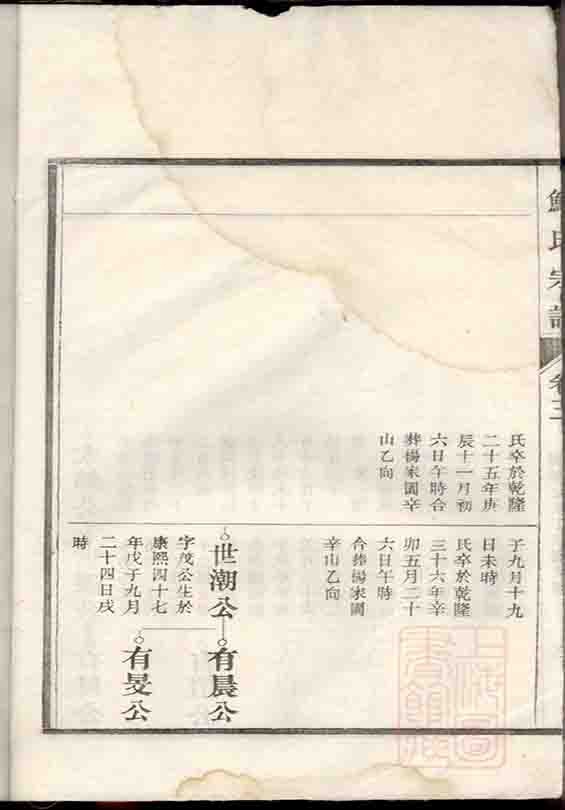 氏宗譜
卷三
氏卒於乾隆
二十五年庚
辰十一月初
六日午時合
葬楊家園辛
山乙向
子九月十九
日未時
氏卒於乾隆
三十六年辛
卯五月二十
六日午時
合葬楊家園
辛山乙向
世潮公
字茂公生於
康熙四十七
年戊子九月
二十四日戌
時
有晨公
有旻公
上海圖書館藏